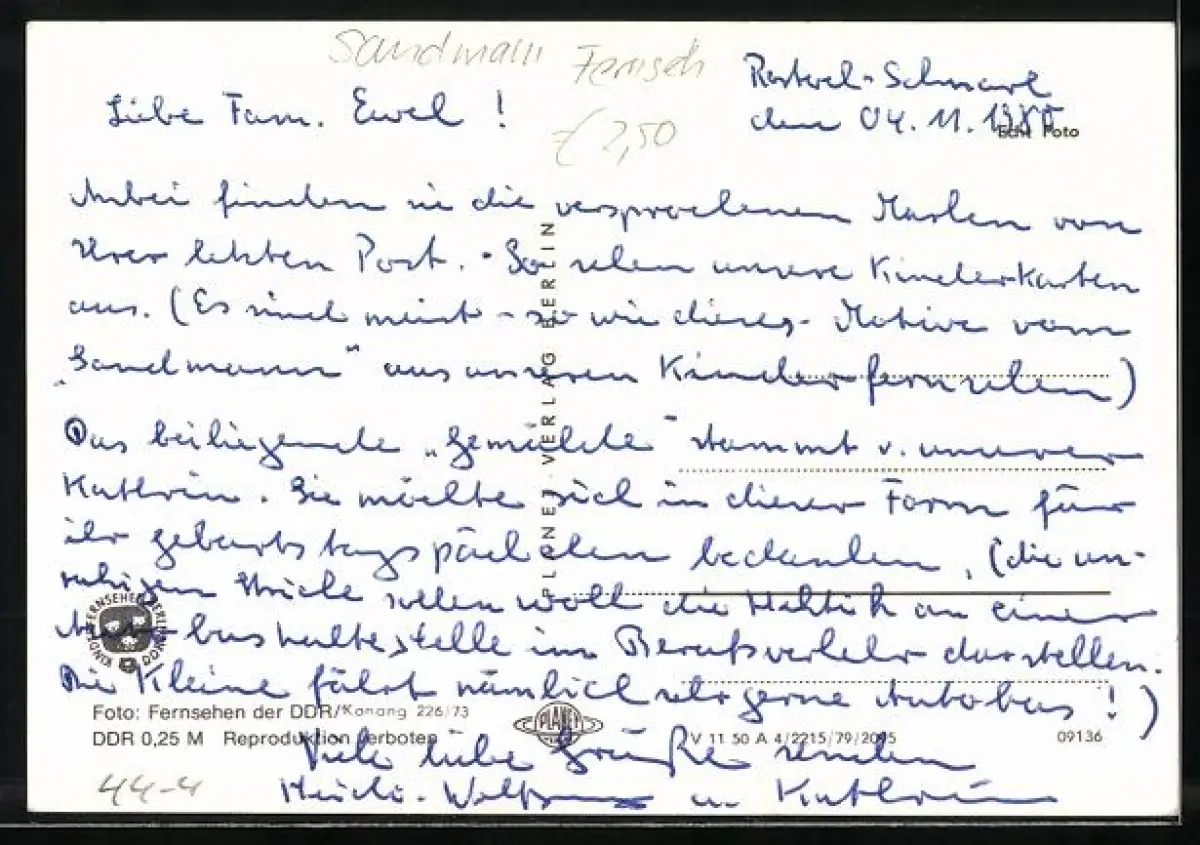 Sandmann Fernseh
€ 2,50
Rostock-Schmarl
den 04.11.1980
Echt Foto
Liebe Fam. Ewel !
Anbei finden Sie die versprochenen Marken von
Ihrer letzten Post. - So sehen unsere Kinderkarten
aus. (Es sind meist - so wie dieses - Motive vom
„Sandmann" aus unseren Kinderfernsehen)
Das beiliegende „Gemälde" stammt v. unserer
Kathrin. Sie möchte sich in dieser Form für
ihr Geburtstagspäckchen bedanken, (die un-
ruhigen Striche sollen wohl die Hektik an einer
Autobushaltestelle im Berufsverkehr darstellen.
Die Kleine fährt nämlich sehr gerne Autobus ! )
Viele liebe Grüße senden
Wolfgang u. Kathrin
PLANET-VERLAG BERLIN
FERNSEHEN BERLIN DDR
Foto: Fernsehen der DDR/Konang 226/73
DDR 0,25 M Reproduktion verboten
PLANET
V 11 50 A 4/2215/79/2095
09136
44-4